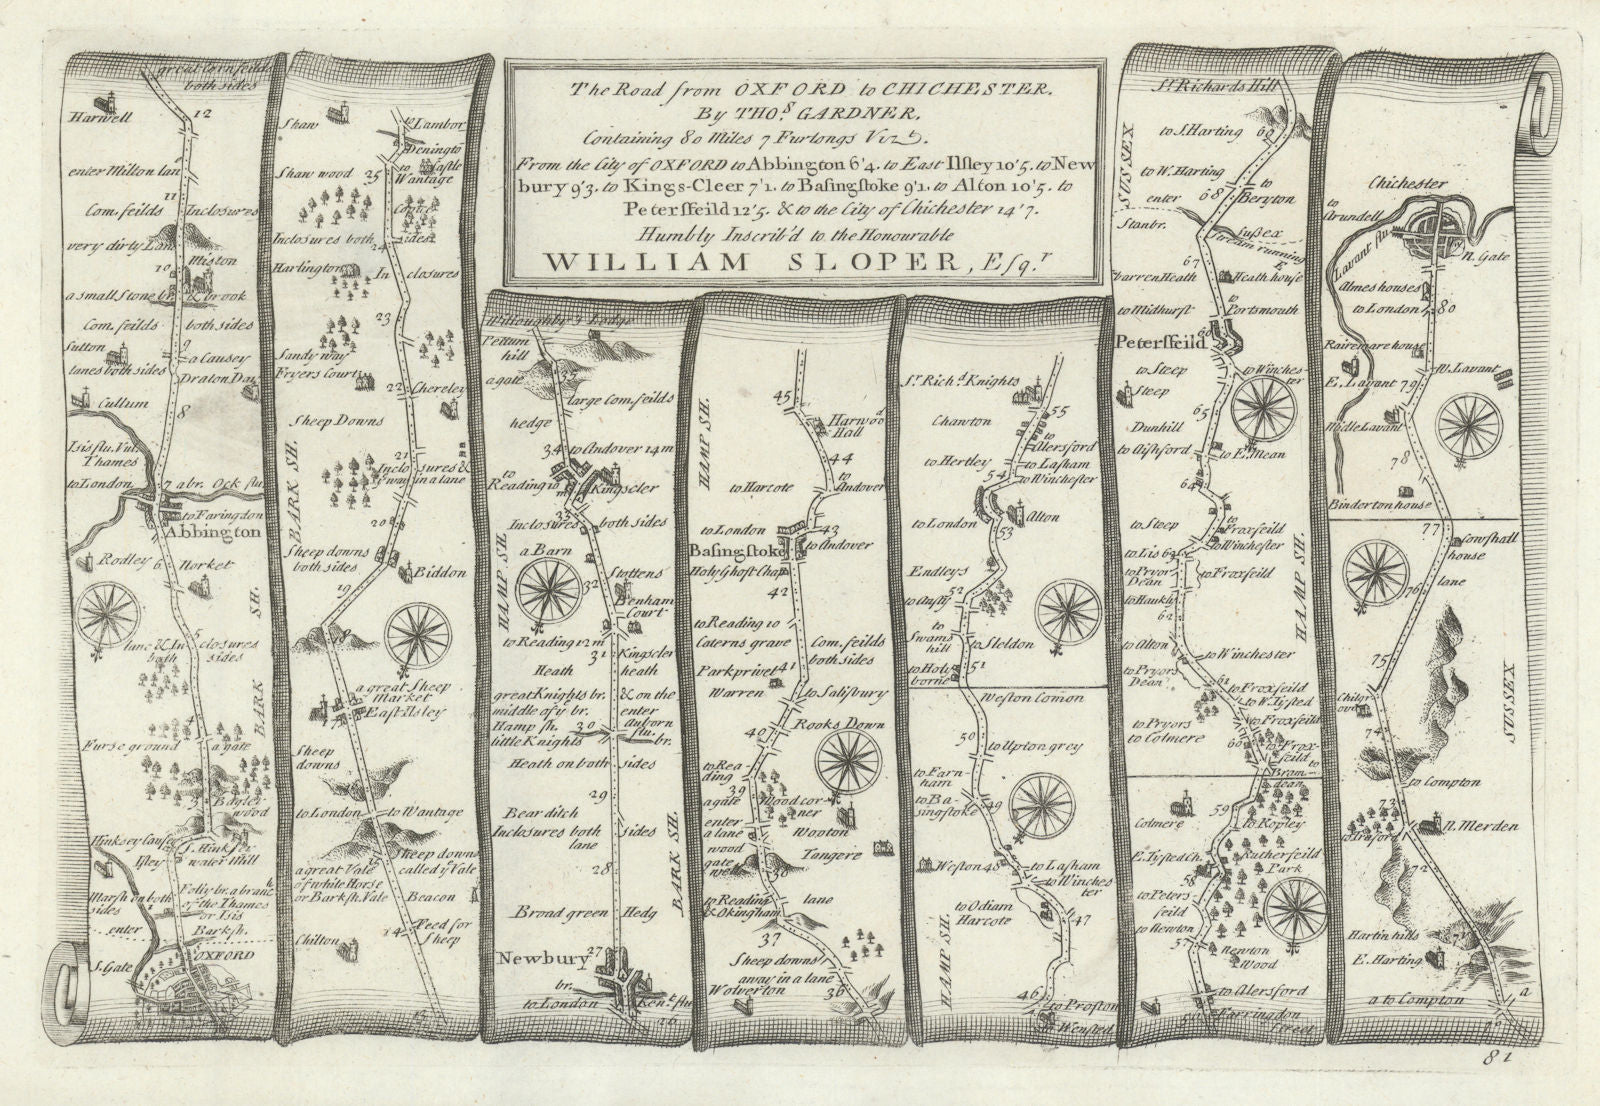 The Road from OXFORD to CHICHESTER.
By THO.s GARDNER.
Containing 80 Miles 7 Furlongs Viz.
From the City of OXFORD to Abbington 6'4. to East Ilsley 10'5. to New
bury 9'3. to Kings-Cleer 7'1. to Basingstoke 9'1. to Alton 10'5. to
Petersfeild 12'5. & to the City of Chichester 14'7.
Humbly Inscrib'd to the Honourable
WILLIAM SLOPER, Esq.r
great Corn feilds
both sides
12
Harwell
enter Milton lan
11
Com. feilds Inclosures
very dirty Lan
10 Miston
a small Stone br. & brook
Com. feilds both sides
Sutton
9
a Causey
lanes both sides
Draton
Cullum
8
Isis flu. Vul.
Thames
to London
7 a br. Ock flu
to Faringdon
Abbington
Rodley
6
Norket
BARK SH.
5
lane & In closures
both sides
4
Furse ground a gate
3 Bagley
wood
Hinksey Causey
S. Hinksey
water Mill
Isley
Marsh on both
sides
Folly br. a branch
of the Thames
or Isis
enter Barksh.
OXFORD
S. Gate
Shaw
to Lambor
Denington
Castle
to Wantage
Shaw wood 25
Inclosures both sides
24
Harlington
In closures
23
Sandy way
Fryers Court
22
Chereley
Sheep Downs
BARK SH.
21
Inclosures &
way in a lane
20
Sheep downs
both sides
Biddon
19
18
a great Sheep
Market
East Ilsley
Sheep
downs
to London to Wantage
15
Sheep downs
called y Vale
a great Vale
of white Horse
or Barksh. Vale
Beacon
14
Feed for
Sheep
Chilton
13
Willoughby's Lodge
Pettum
hill
a gate
large Com. feilds
hedge
34 to Andover 14 m
to
Reading 10
m
Kingscler
33
Inclosures both sides
HAMP SH.
a Barn
32
Stottens
Benham
Court
to Reading 12 m
31 Kingscler
heath
Heath
great Knights br. & on the
middle of y br. enter
Hamp sh.
30 Auborn
flu.
little Knights br.
Heath on both sides
29
Bear ditch
Inclosures both sides
lane
BARK SH.
28
Broad green Hedg
27
Newbury
br.
to London
Ken.t flu
26
HAMP SH.
45
Harwood
Hall
44
to Harcote
to
Andover
to London
43
Basingstoke
to Andover
Holy Ghost Chap.
42
to Reading 10
Caterns grave
Com. feilds
both sides
Parkprivet 41
Warren
to Salisbury
Rooks Down
40
to Rea
ding
39
a gate
Wood cor
ner
enter
a lane
Wooton
wood
gate
Tangere
38
to Reading
& Okingham
lane
37
Sheep downs
away in a lane
Wolverton
36
Sr. Richd. Knights
55
Chawton
to
Alersford
to Hertley
to Lasham
54
to Winchester
to London
Alton
53
Endleys
52
to Swams
hill
to Sleldon
to Holy
borne
51
Weston Comon
50
to Upton grey
to Farn
ham
to Ba
singstoke
49
Weston 48
to Lasham
to Winches
ter
to Odiam
Harcote
47
HAMP SH.
46
to Preston
Wensted
St. Richards Hill
SUSSEX
to S. Harting
69
to W. Harting
68
to
Beryton
enter
Sussex
Stanbr.
Stream running
E
67
barren Heath
Heath house
to Midhurst
to
Portsmouth
66
Petersfeild
to Steep
to Winches
ter
Steep
65
Dunhill
to Ashford
to E. Mean
64
to Steep
to
Froxfeild
to Winchester
to Lis 63
to Pryors
Dean
to Froxfeild
to Haukly
62
HAMP SH.
to Alton
to Winchester
to Pryors
Dean
61
to Froxfeild
to W. Tysted
to Pryors
to Froxfeild
to Colmere
60
to Frox-
feild
to
Bram
dean
59
Colmere
to Ropley
E. Tysted Ch.
Rutherfeild
Park
58
to Peters
feild
to Newton
57
Newton
Wood
to Alersford
Farringdon
street
Chichester
to
Arundell
Lavant flu
N. Gate
Almes houses
to London 80
Rairemare house
E. Lavant
79
W. Lavant
Midle Lavant
78
Binderton house
77
Cowshall
house
76
lane
75
Chilgr
ove
SUSSEX
74
to Compton
73
N. Merden
72
Hartin hills
71
E. Harting
a to Compton
70
81